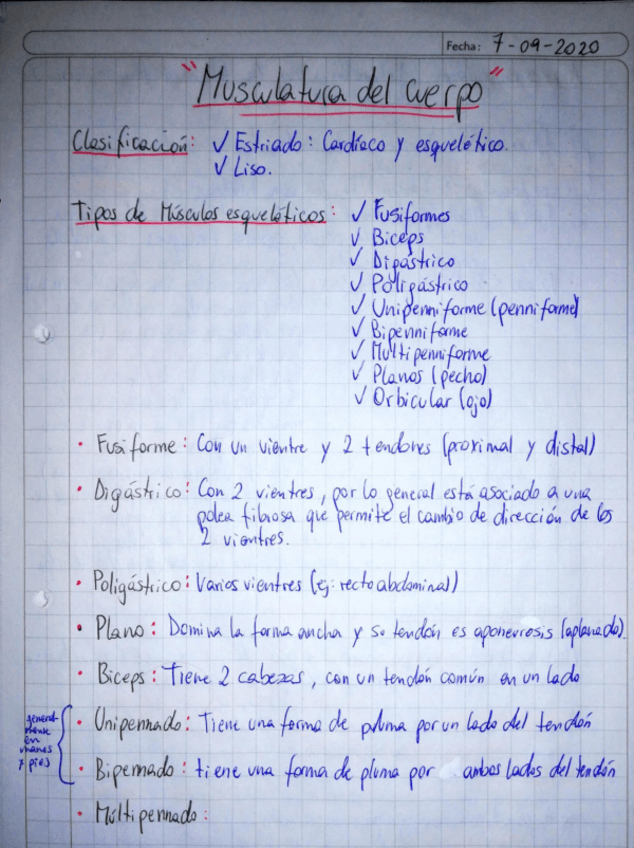 Fecha: 7-09-2020
"Musculatura del cuerpo"
Clasificación: ✓ Estriado: Cardíaco y esquelético.
✓ Liso.
Tipos de Músculos esqueléticos: ✓ Fusiformes
✓ Biceps
✓ Digástrico
✓ Poligástrico
✓ Unipenniforme (penniforme)
✓ Bipenniforme
✓ Multipenniforme
✓ Planos (pecho)
✓ Orbicular (ojo)
• Fusiforme: Con un vientre y 2 tendones (proximal y distal)
• Digástrico: Con 2 vientres, por lo general está asociado a una
polea fibrosa que permite el cambio de dirección de los
2 vientres.
• Poligástrico: Varios vientres (ej: recto abdominal)
• Plano: Domina la forma ancha y su tendón es aponeurosis (aplanado).
• Biceps: Tiene 2 cabezas, con un tendón común en un lado
general-
mente
en
manos
y pies
• Unipennado: Tiene una forma de pluma por un lado del tendón
• Bipennado: tiene una forma de pluma por ambos lados del tendón
• Multipennado: